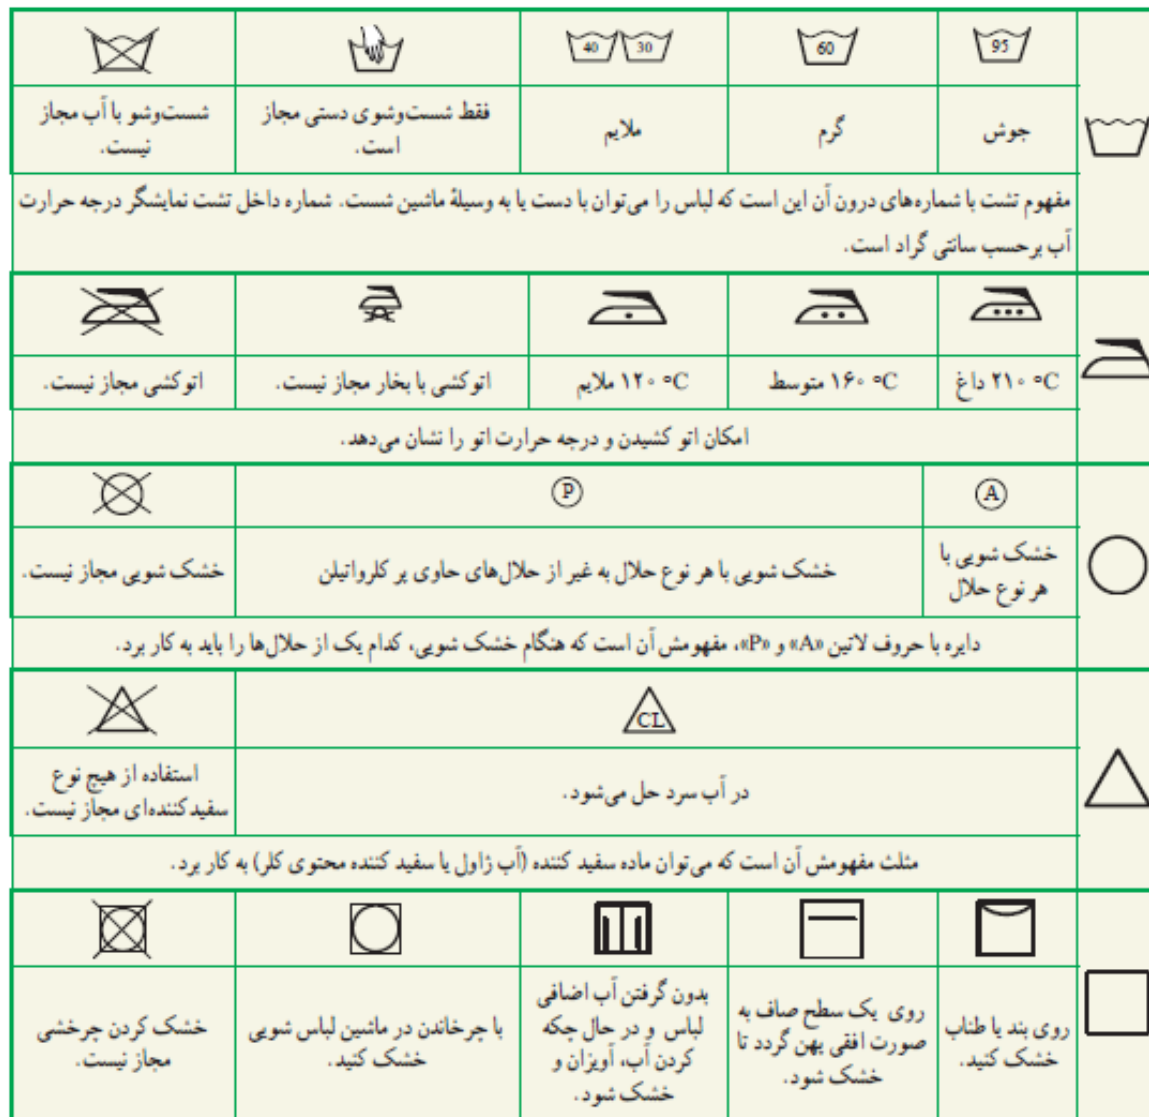 95
60
30
40
جوش
گرم
ملایم
فقط شست‌وشوی دستی مجاز
است.
شست‌وشو با آب مجاز
نیست.
مفهوم تشت با شماره‌های درون آن این است که لباس را می‌توان با دست یا به وسیلهٔ ماشین شست. شماره داخل تشت نمایشگر درجه حرارت
آب برحسب سانتی گراد است.
۲۱۰ °C داغ
۱۶۰ °C متوسط
۱۲۰ °C ملایم
اتوکشی با بخار مجاز نیست.
اتوکشی مجاز نیست.
امکان اتو کشیدن و درجه حرارت اتو را نشان می‌دهد.
A
P
خشک شویی با
هر نوع حلال
خشک شویی با هر نوع حلال به غیر از حلال‌های حاوی پر کلرواتیلن
خشک شویی مجاز نیست.
دایره با حروف لاتین «A» و «P»، مفهومش آن است که هنگام خشک شویی، کدام یک از حلال‌ها را باید به کار برد.
CL
در آب سرد حل می‌شود.
استفاده از هیچ نوع
سفیدکننده‌ای مجاز نیست.
مثلث مفهومش آن است که می‌توان ماده سفید کننده (آب ژاول یا سفید کننده محتوی کلر) به کار برد.
روی بند یا طناب
خشک کنید.
روی یک سطح صاف به
صورت افقی پهن گردد تا
خشک شود.
بدون گرفتن آب اضافی
لباس و در حال چکه
کردن آب، آویزان و
خشک شود.
با چرخاندن در ماشین لباس شویی
خشک کنید.
خشک کردن چرخشی
مجاز نیست.